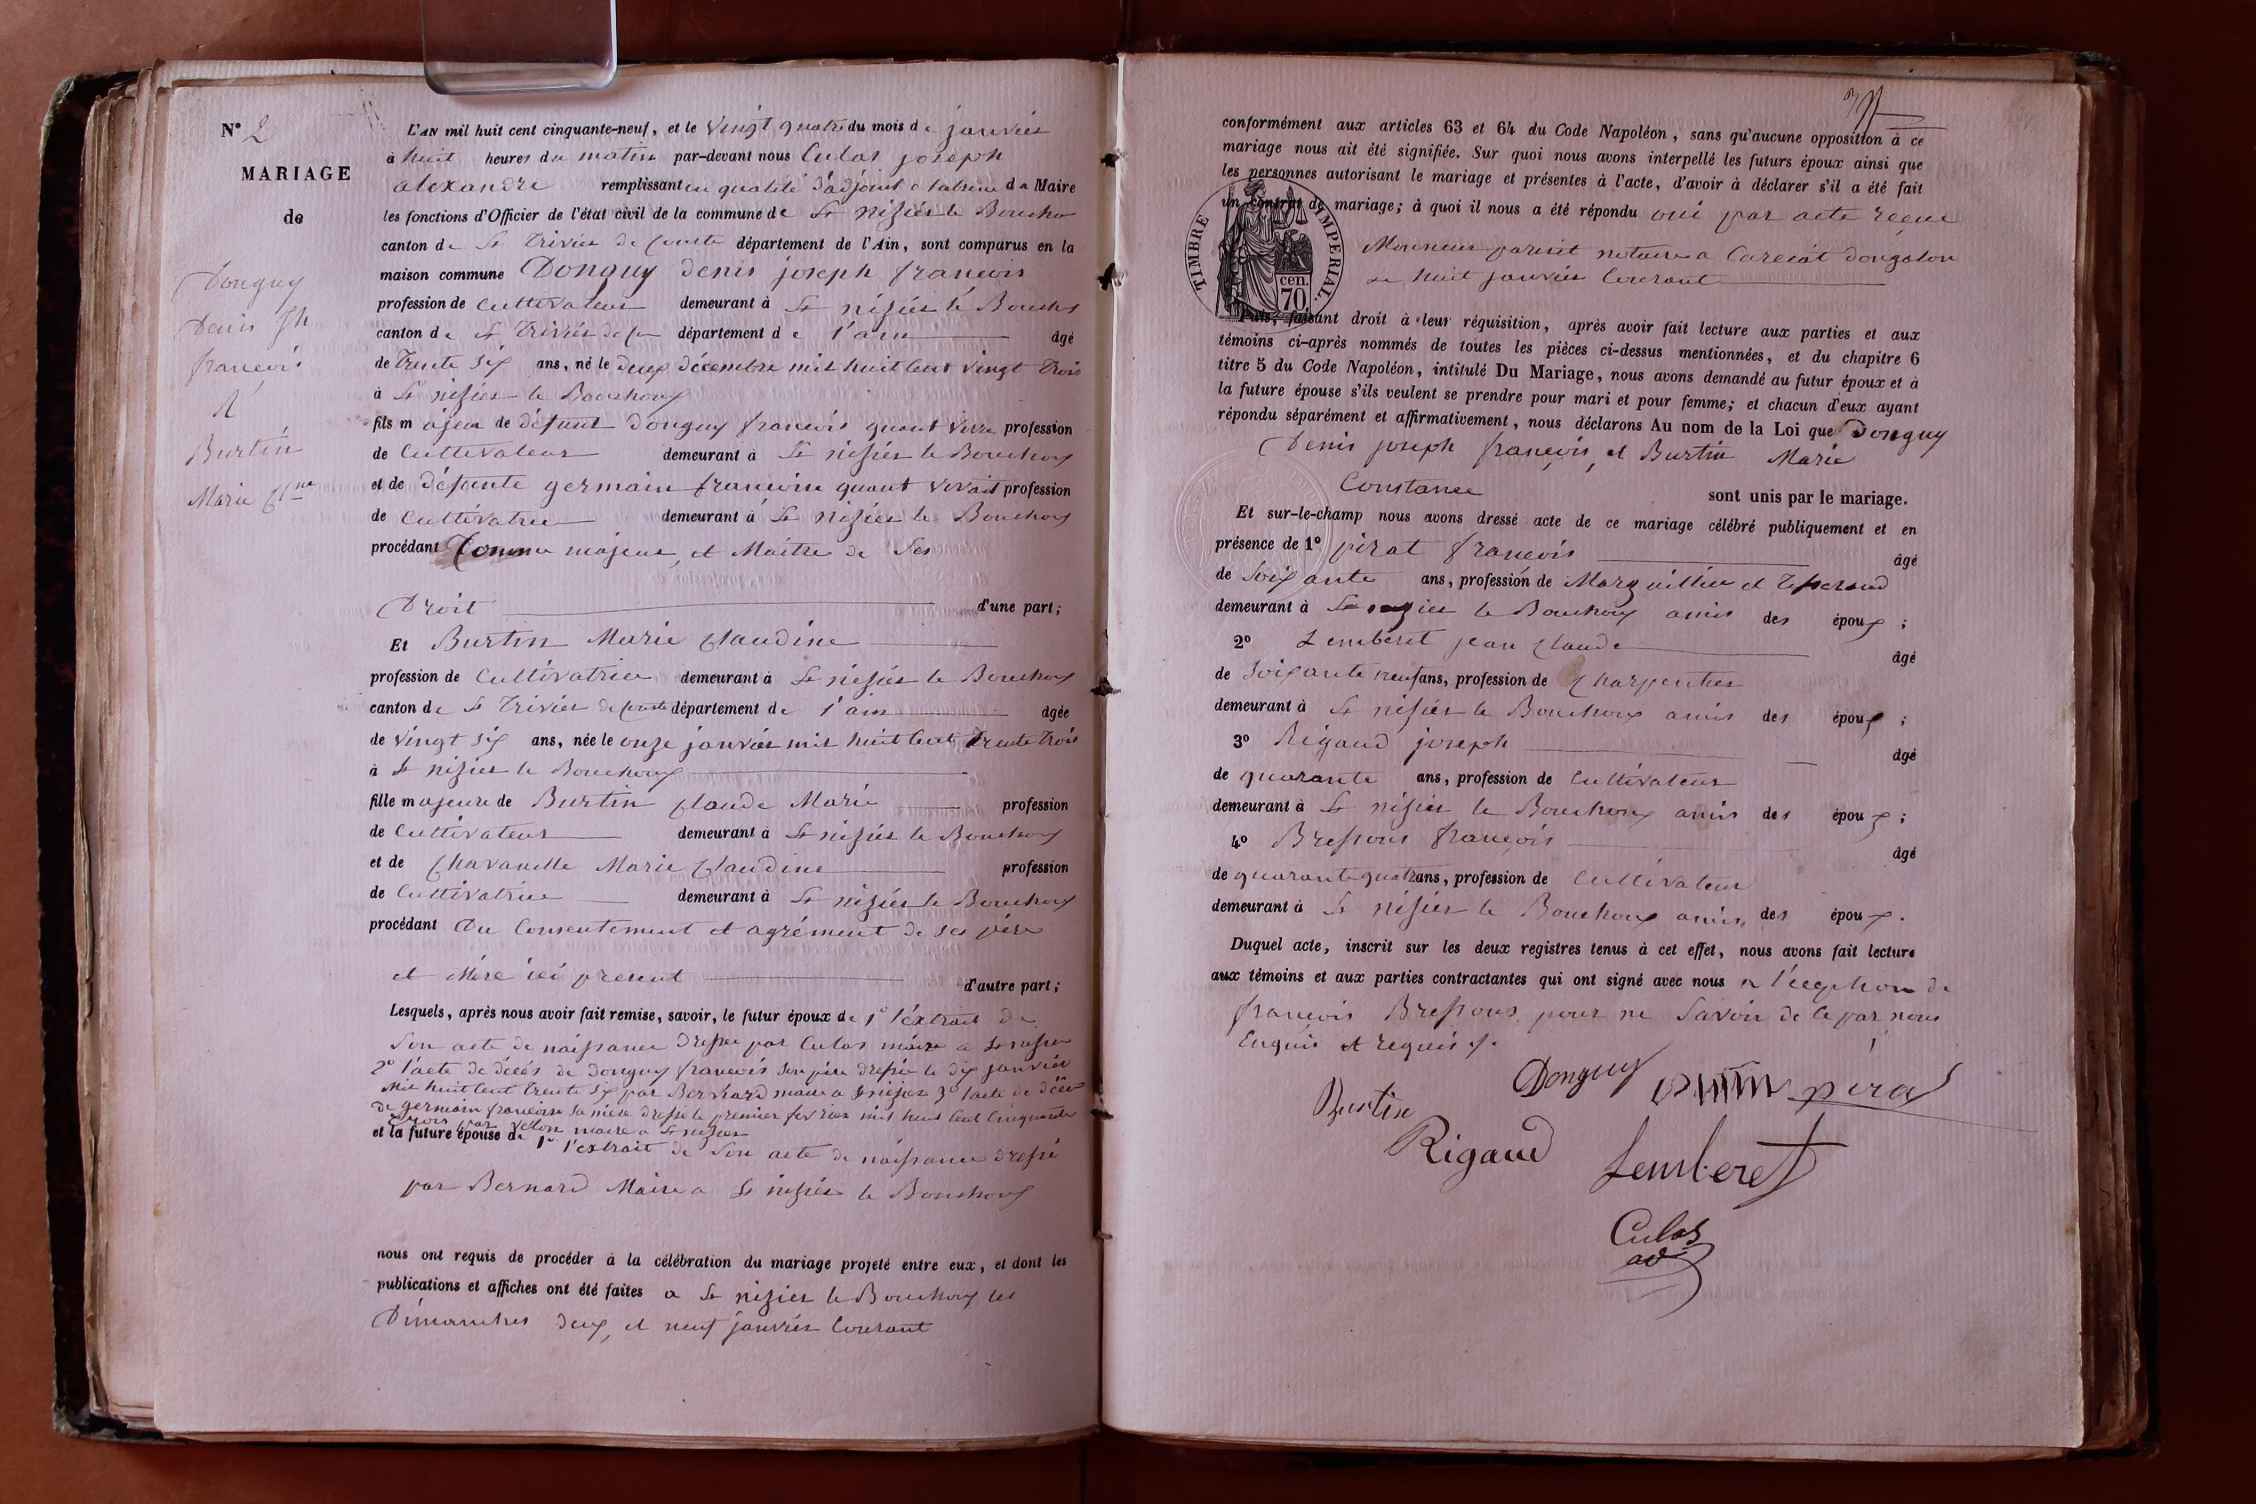 N° 2
MARIAGE
de
Donguy
Denis Jh
francois
&
Burtin
Marie Cl.ne
L'AN mil huit cent cinquante-neuf, et le vingt quatre du mois de janvier
à huit heures du matin par-devant nous Culas joseph
alexandre remplissant en qualité d'adjoint de Maire
les fonctions d'Officier de l'état civil de la commune de St nizier le Bouchoux
canton de St Trivier de Courte département de l'Ain, sont comparus en la
maison commune Donguy denis joseph francois
profession de Cultivateur demeurant à St nizier le Bouchx
canton de St Trivier de Cou département de l'ain âgé
de trente six ans, né le deux décembre mil huit Cent vingt trois
à St nizier le Bouchoux
fils majeur de défunt Donguy francois quant vivre profession
de Cultivateur demeurant à St nizier le Bouchoux
et de défunte germain francoise quant vivait profession
de Cultivatrice demeurant à St nizier le Bouchoux
procédant Comme majeur et Maitre de Ses
Droit d'une part;
Et Burtin Marie Claudine
profession de Cultivatrice demeurant à St nizier le Bouchoux
canton de St Trivier de Courte département de l'ain âgée
de vingt six ans, née le onze janvier mil huit Cent trente trois
à St nizier le Bouchoux
fille majeure de Burtin Claude Marie profession
de Cultivateur demeurant à St nizier le Bouchoux
et de Chavanelle Marie Claudine profession
de Cultivatrice demeurant à St nizier le Bouchoux
procédant Du Consentement et agrément de ses père
et Mère ici present d'autre part;
Lesquels, après nous avoir fait remise, savoir, le futur époux de 1° l'extrait de
Son acte de naissance dressé par Culas maire a St nizier
2° l'acte de décès de Donguy francois son père dressé le dix janvier
Mil huit Cent trente six par Bernard maire a St nizier 3° l'acte de décès
de germain francoise sa mère dressé le premier fevrier mil huit Cent Cinquante
trois par maire a St nizier
et la future épouse de 1° l'extrait de Son acte de naissance dressé
par Bernard Maire a St nizier le Bouchoux
nous ont requis de procéder à la célébration du mariage projeté entre eux, et dont les
publications et affiches ont été faites a St nizier le Bouchoux les
Dimanches deux et neuf janvier Courant
conformément aux articles 63 et 64 du Code Napoléon, sans qu'aucune opposition à ce
mariage nous ait été signifiée. Sur quoi nous avons interpellé les futurs époux ainsi que
les personnes autorisant le mariage et présentes à l'acte, d'avoir à déclarer s'il a été fait
un contrat de mariage; à quoi il nous a été répondu oui par acte reçue
Monsieur notaire a
le huit janvier Courant
TIMBRE IMPERIAL.
cen.
70
Puis, faisant droit à leur réquisition, après avoir fait lecture aux parties et aux
témoins ci-après nommés de toutes les pièces ci-dessus mentionnées, et du chapitre 6
titre 5 du Code Napoléon, intitulé Du Mariage, nous avons demandé au futur époux et à
la future épouse s'ils veulent se prendre pour mari et pour femme; et chacun d'eux ayant
répondu séparément et affirmativement, nous déclarons Au nom de la Loi que Donguy
Denis joseph françois, et Burtin Marie
Constance sont unis par le mariage.
Et sur-le-champ nous avons dressé acte de ce mariage célébré publiquement et en
présence de 1° pirat francois âgé
de Soixante ans, profession de Marguillier et Tisserand
demeurant à St nizier le Bouchoux amis des époux;
2° Lemberet jean Claude âgé
de Soixante neuf ans, profession de Charpentier
demeurant à St nizier le Bouchoux amis des époux;
3° Rigaud joseph âgé
de quarante ans, profession de Cultivateur
demeurant à St nizier le Bouchoux amis des époux;
4° Bressous françois âgé
de quarante quatre ans, profession de Cultivateur
demeurant à St nizier le Bouchoux amis des époux.
Duquel acte, inscrit sur les deux registres tenus à cet effet, nous avons fait lecture
aux témoins et aux parties contractantes qui ont signé avec nous a l'exception de
francois Bressous pour ne Savoir de ce par nous
Enquis et requis
Donguy pirat
Burtin
Rigaud Lemberet
Culas
ad